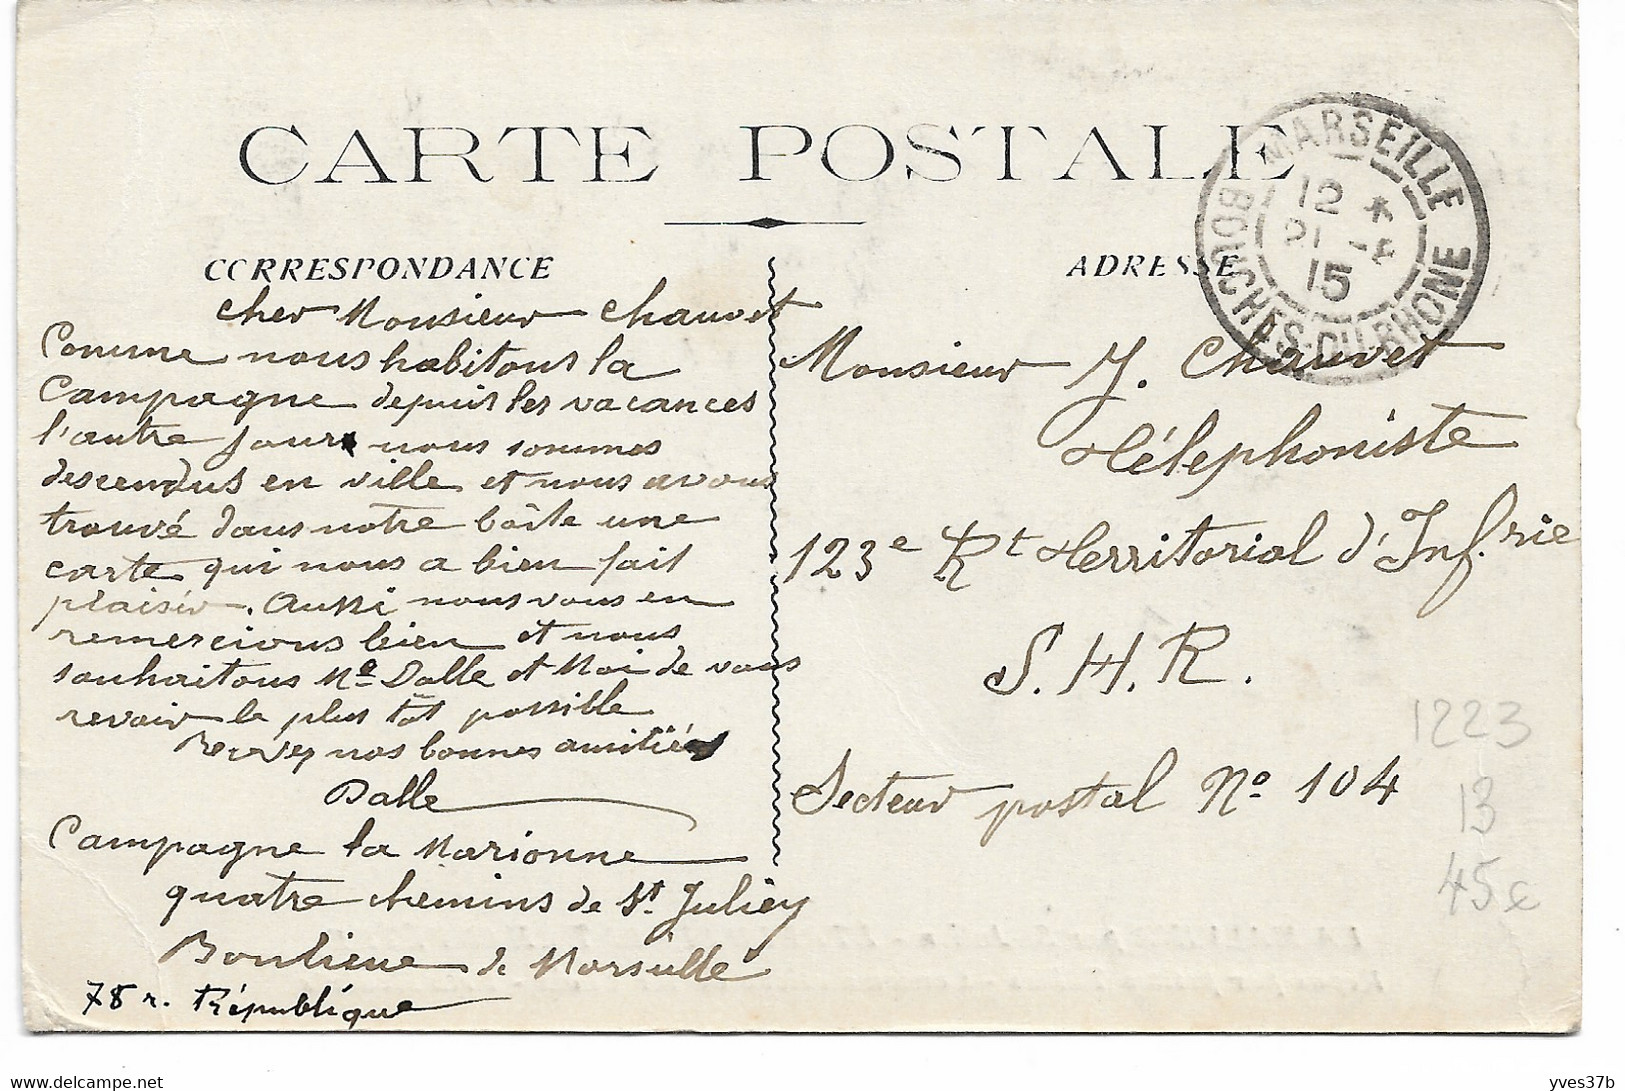 CARTE POSTALE
CORRESPONDANCE
cher Monsieur Chauvet
Comme nous habitons la
Campagne depuis les vacances
l'autre jour nous sommes
descendus en ville et nous avons
trouvé dans notre boîte une
carte qui nous a bien fait
plaisir. Aussi nous vous en
remercions bien et nous
souhaitons Me Dalle et Moi de vous
revoir le plus tôt possible
Recevez nos bonnes amitiés
Dalle
Campagne la Marionne
quatre chemins de St Julien
Banlieue de Marseille
78 r. République
ADRESSE
MARSEILLE
12 *
15
BOUCHES-DU-RHONE
Monsieur J. Chauvet
Téléphoniste
123e Rt Territorial d'Inf.rie
S.H.R.
Secteur postal No 104
1223
13
45e
delcampe.net
yves37b